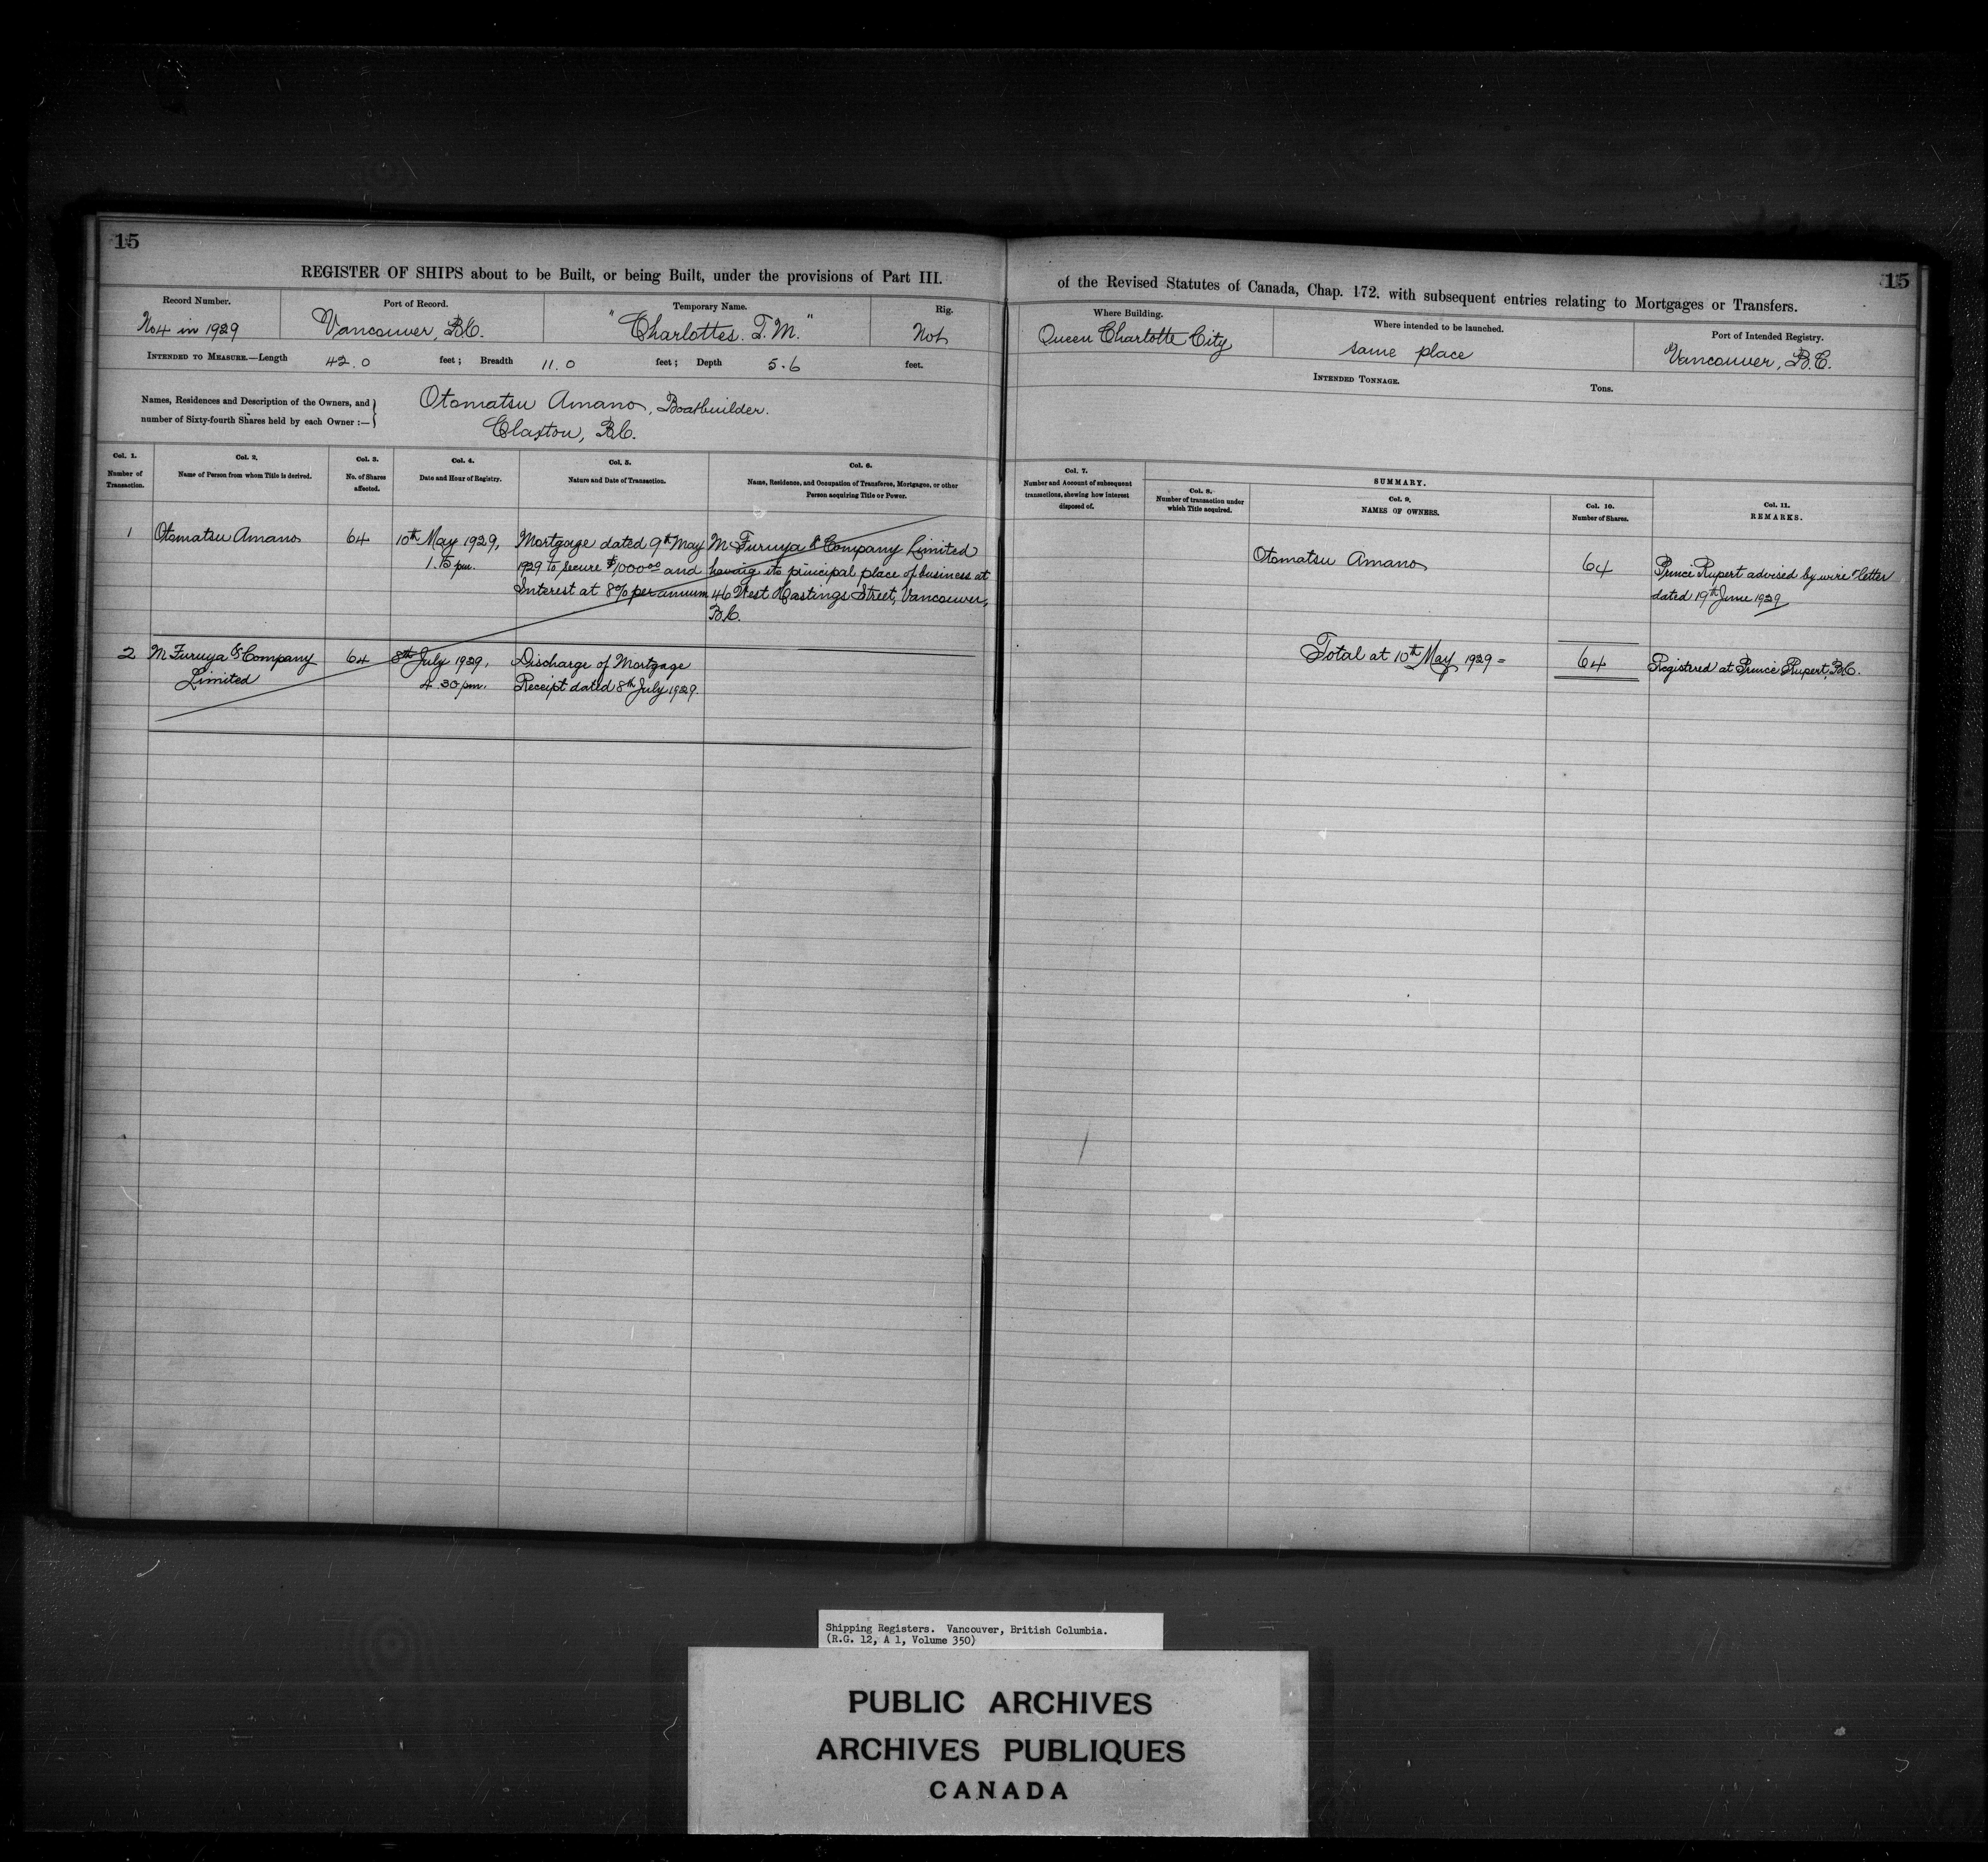 15
REGISTER OF SHIPS about to be Built, or being Built, under the provisions of Part III.
Record Number.
No 4 in 1929
Port of Record.
Vancouver, B.C.
Temporary Name.
"Charlottes. T. M."
Rig.
Not
INTENDED TO MEASURE.—Length 42.0 feet; Breadth 11.0 feet; Depth 5.6 feet.
Names, Residences and Description of the Owners, and
number of Sixty-fourth Shares held by each Owner :—
Otomatsu Amano, Boatbuilder.
Claxton, B.C.
Col. 1.
Number of
Transaction.
Col. 2.
Name of Person from whom Title is derived.
Col. 3.
No. of Shares
affected.
Col. 4.
Date and Hour of Registry.
Col. 5.
Nature and Date of Transaction.
Col. 6.
Name, Residence, and Occupation of Transferee, Mortgagee, or other
Person acquiring Title or Power.
1 Otomatsu Amano 64 10th May 1929, Mortgage dated 9th May M. Furuya & Company Limited
1.15 pm. 1929 to secure $1,000.00 and having its principal place of business at
Interest at 8% per annum 46 West Hastings Street, Vancouver,
B.C.
2 M Furuya & Company 64 8th July 1929, Discharge of Mortgage
Limited 4.30 pm. Receipt dated 8th July 1929.
15
of the Revised Statutes of Canada, Chap. 172. with subsequent entries relating to Mortgages or Transfers.
Where Building.
Queen Charlotte City
Where intended to be launched.
same place
Port of Intended Registry.
Vancouver, B.C.
INTENDED TONNAGE. Tons.
Col. 7.
Number and Account of subsequent
transactions, shewing how interest
disposed of.
SUMMARY.
Col. 8.
Number of transaction under
which Title acquired.
Col. 9.
NAMES OF OWNERS.
Col. 10.
Number of Shares.
Col. 11.
REMARKS.
Otomatsu Amano 64 Prince Rupert advised by wire & letter
dated 19th June 1929
Total at 10th May 1929 = 64 Registered at Prince Rupert, B.C.
Shipping Registers. Vancouver, British Columbia.
(R.G. 12, A 1, Volume 350)
PUBLIC ARCHIVES
ARCHIVES PUBLIQUES
CANADA